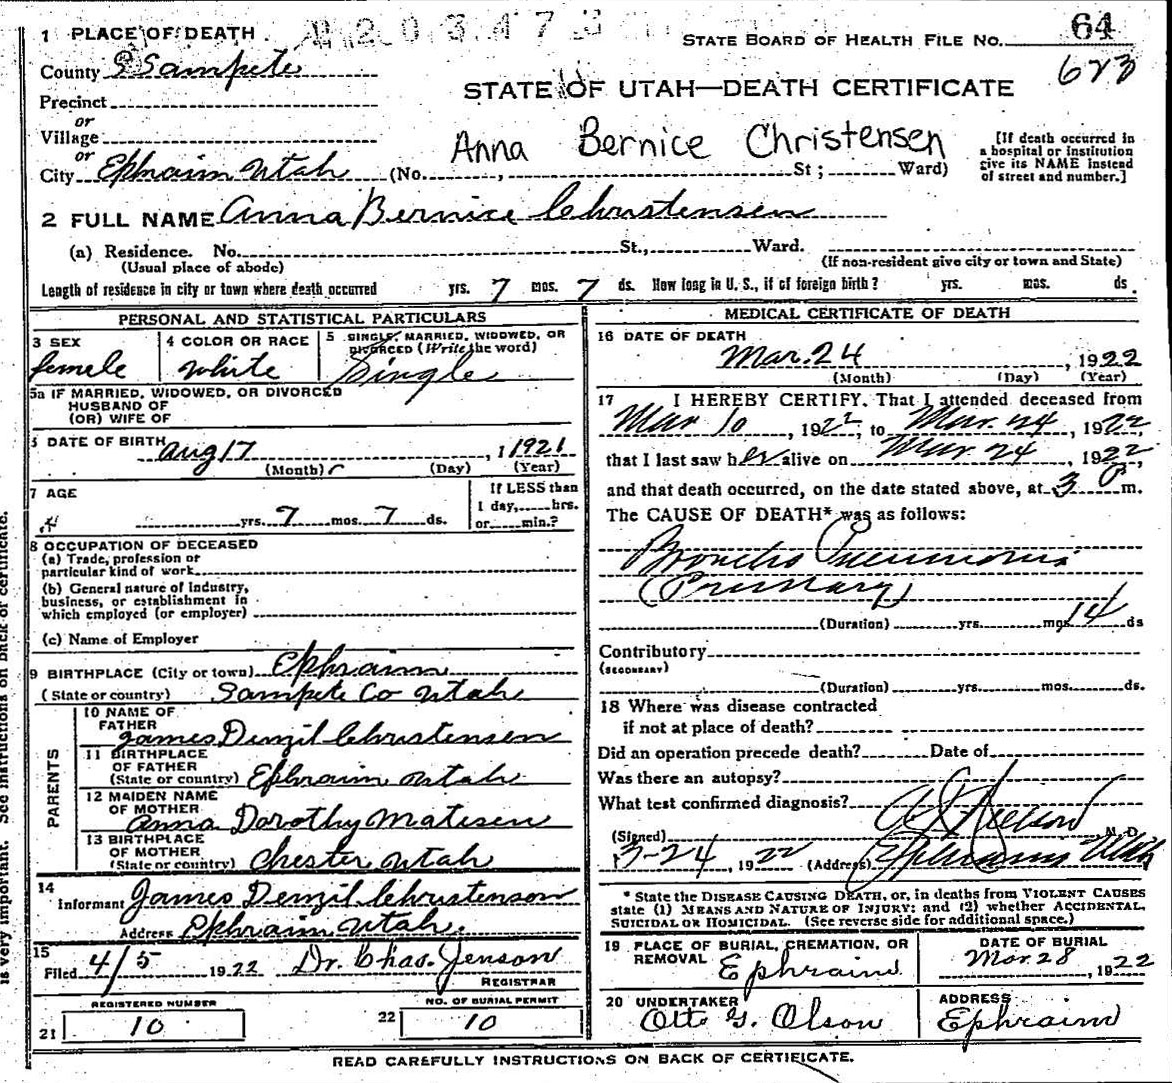 1 PLACE OF DEATH
2203473
STATE BOARD OF HEALTH FILE NO. 64
County Sampete
623
STATE OF UTAH—DEATH CERTIFICATE
Precinct
or
Village
Anna Bernice Christensen
[If death occurred in a hospital or institution give its NAME instead of street and number.]
or
City Ephraim Utah (No. , St; Ward)
2 FULL NAME Anna Bernice Christensen
(a) Residence. No. St., Ward.
(Usual place of abode) (If non-resident give city or town and State)
Length of residence in city or town where death occurred yrs. 7 mos. 7 ds. How long in U. S., if of foreign birth? yrs. mos. ds.
PERSONAL AND STATISTICAL PARTICULARS
3 SEX female
4 COLOR OR RACE White
5 SINGLE, MARRIED, WIDOWED, OR DIVORCED (Write the word) Single
5a IF MARRIED, WIDOWED, OR DIVORCED
HUSBAND OF
(OR) WIFE OF
DATE OF BIRTH Aug 17, 1921
(Month) (Day) (Year)
7 AGE
yrs. 7 mos. 7 ds.
If LESS than
1 day, hrs.
or min.?
8 OCCUPATION OF DECEASED
(a) Trade, profession or
particular kind of work
(b) General nature of industry,
business, or establishment in
which employed (or employer)
(c) Name of Employer
9 BIRTHPLACE (City or town) Ephraim
(State or country) Sampete Co Utah
PARENTS
10 NAME OF FATHER James Denzil Christensen
11 BIRTHPLACE OF FATHER
(State or country) Ephraim Utah
12 MAIDEN NAME OF MOTHER Anna Dorothy Matesen
13 BIRTHPLACE OF MOTHER
(State or country) Chester Utah
14 Informant James Denzil Christenson
Address Ephraim Utah.
15 Filed 4/5 1922 Dr. Chas. Jenson
REGISTRAR
REGISTERED NUMBER
21 10
NO. OF BURIAL PERMIT
22 10
MEDICAL CERTIFICATE OF DEATH
16 DATE OF DEATH
Mar. 24, 1922
(Month) (Day) (Year)
17 I HEREBY CERTIFY, That I attended deceased from
Mar 10, 1922, to Mar. 24, 1922
that I last saw her alive on Mar 24, 1922,
and that death occurred, on the date stated above, at 3 P m.
The CAUSE OF DEATH* was as follows:
Broncho Pneumonia
(Primary)
(Duration) yrs. mos. 14 ds
Contributory
(SECONDARY)
(Duration) yrs. mos. ds.
18 Where was disease contracted
if not at place of death?
Did an operation precede death? Date of
Was there an autopsy?
What test confirmed diagnosis?
(Signed) M. D.
3-24, 1922 (Address) Ephraim Utah
* State the DISEASE CAUSING DEATH, or, in deaths from VIOLENT CAUSES
state (1) MEANS AND NATURE OF INJURY; and (2) whether ACCIDENTAL,
SUICIDAL OR HOMICIDAL. (See reverse side for additional space.)
19 PLACE OF BURIAL, CREMATION, OR REMOVAL Ephraim
DATE OF BURIAL
Mar. 28, 1922
20 UNDERTAKER
Otto G. Olson
ADDRESS
Ephraim
READ CAREFULLY INSTRUCTIONS ON BACK OF CERTIFICATE.
is very important. See instructions on back of certificate.